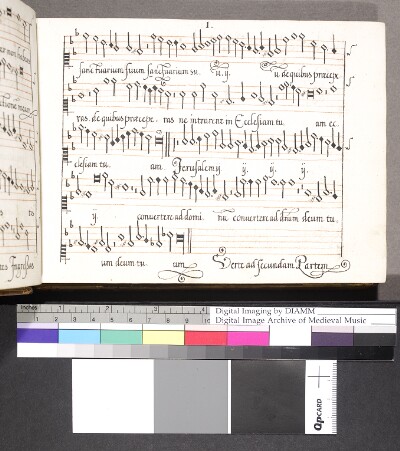 1.
sanctuarium suum sanctuarium su. ij. u de quibus præcepe
ras. de quibus præcepe. ras ne intrarent in Ecclesiam tu. am ec.
clesiam tu. am Jerusalem ij ij. ij. ij.
ij. convertere ad domi. nu convertere ad dnum deum tu.
um deum tu. um Verte ad secundam Partem
inches 1 2 3
cm 1 2 3 4 5 6 7 8 9 10
Digital Imaging by DIAMM
Digital Image Archive of Medieval Music
QPCARD